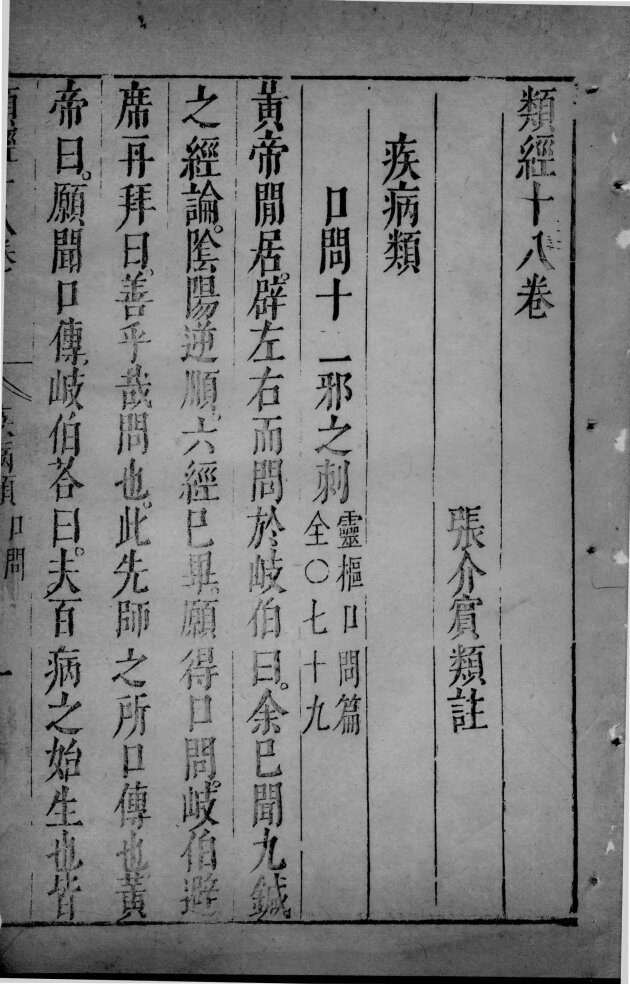 類經十八卷
張介賓類註
疾病類
口問十二邪之刺
靈樞口問篇
全〇七十九
黃帝閒居。辟左右而問於岐伯曰。余已聞九鍼
之經論。陰陽逆順。六經已畢。願得口問。岐伯避
席再拜曰。善乎哉問也。此先師之所口傳也。黃
帝曰。願聞口傳。岐伯荅曰。夫百病之始生也。皆
類經十八卷 疾病類 口問 一